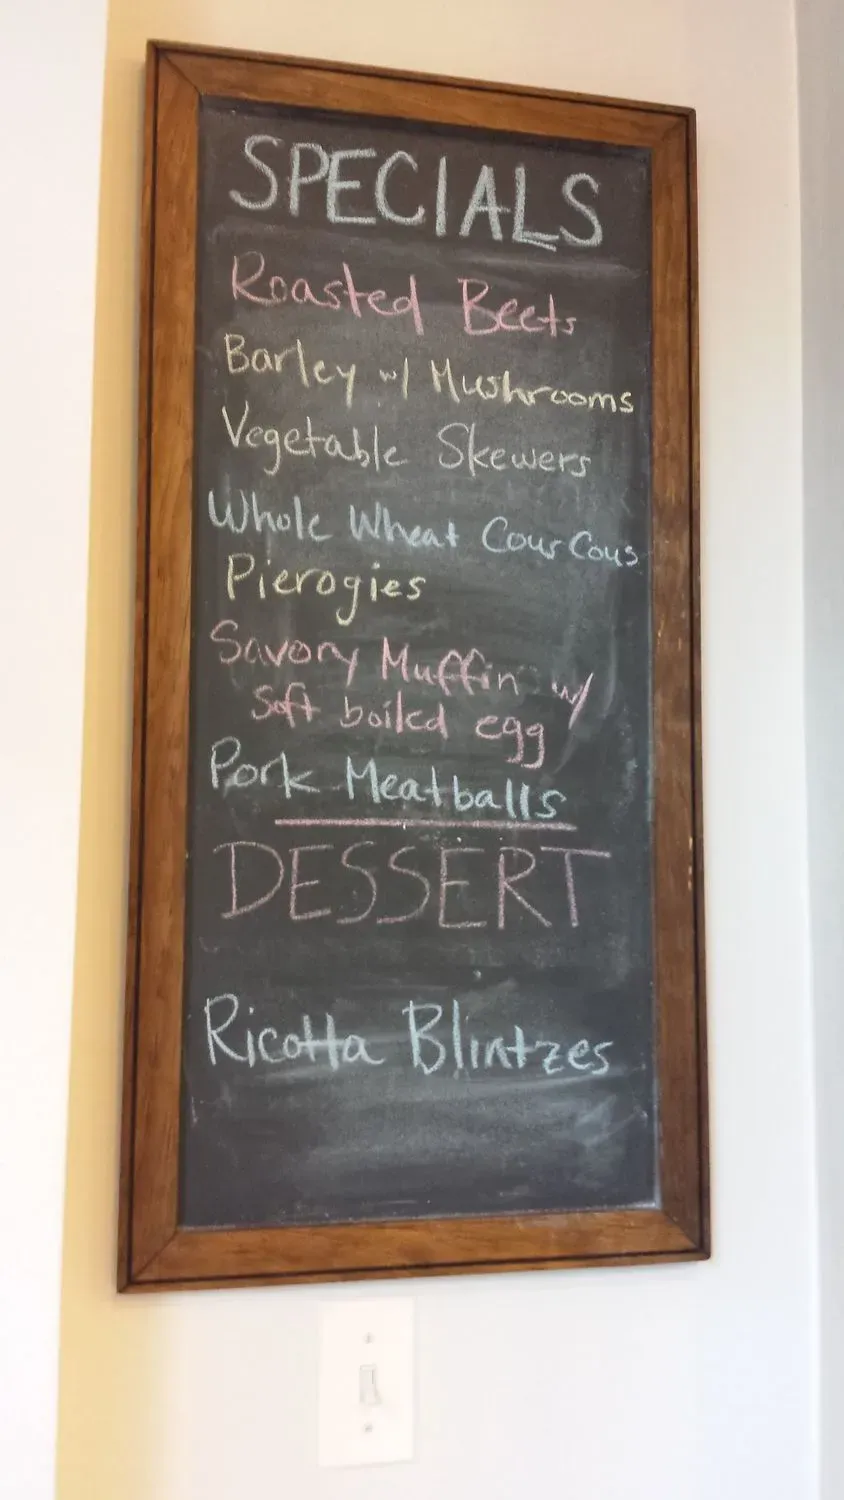 SPECIALS
Roasted Beets
Barley w/ Mushrooms
Vegetable Skewers
Whole Wheat Cous Cous
Pierogies
Savory Muffin w/
Soft boiled egg
Pork Meatballs
DESSERT
Ricotta Blintzes